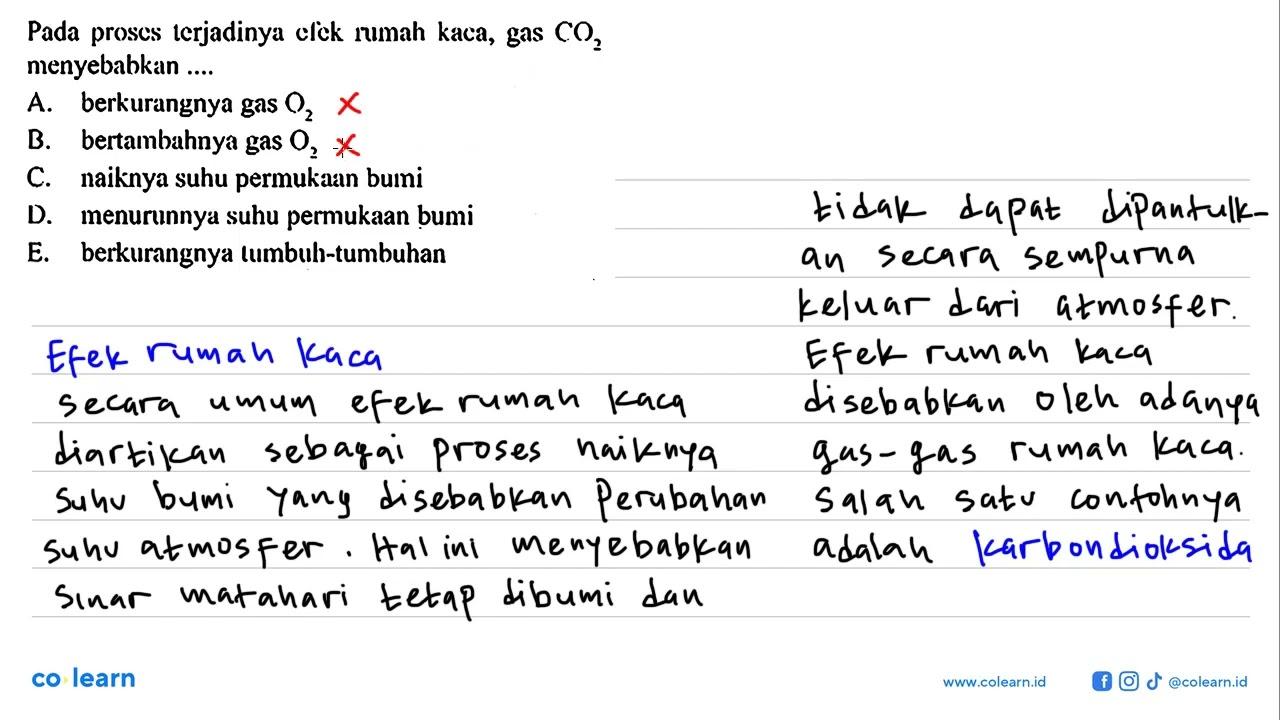 Pada proses terjadinya efek rumah kaca, gas CO₂
menyebabkan ....
A. berkurangnya gas O₂ ×
B. bertambahnya gas O₂ ×
C. naiknya suhu permukaan bumi
D. menurunnya suhu permukaan bumi
E. berkurangnya tumbuh-tumbuhan
Efek rumah kaca
secara umum efek rumah kaca
diartikan sebagai proses naiknya
suhu bumi yang disebabkan perubahan
suhu atmosfer. Hal ini menyebabkan
sinar matahari tetap dibumi dan
tidak dapat dipantulk-
an secara sempurna
keluar dari atmosfer.
Efek rumah kaca
disebabkan oleh adanya
gas-gas rumah kaca.
salah satu contohnya
adalah karbondioksida
co learn
www.colearn.id
@colearn.id